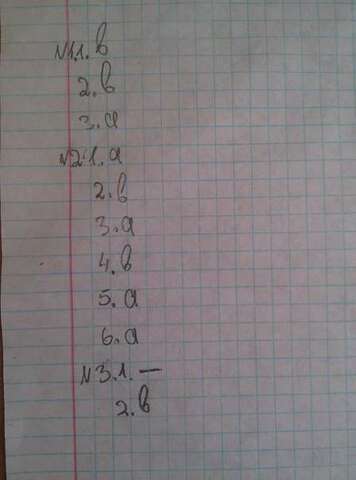 №1.1. в
2. в
3. а
№2.1. а
2. в
3. а
4. в
5. а
6. а
№3.1. —
2. в